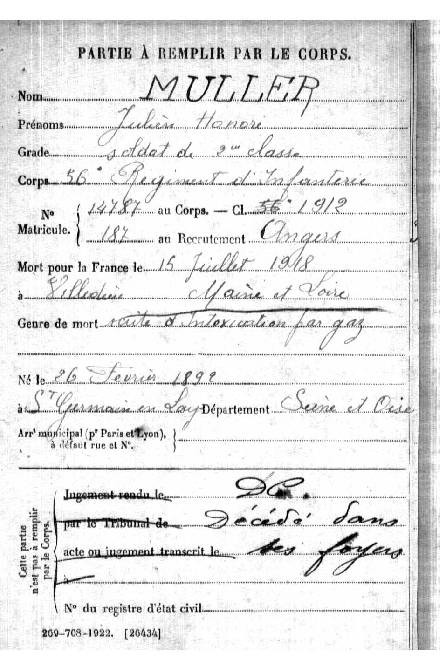 PARTIE À REMPLIR PAR LE CORPS.
Nom MULLER
Prénoms Julien Honoré
Grade soldat de 2me classe
Corps 56e Régiment d'Infanterie
No Matricule. { 14787 au Corps. — Cl. 56e 1912
187 au Recrutement Angers
Mort pour la France le 15 Juillet 1918
à Maine et Loire
Genre de mort suite d'Intoxication par gaz
Né le 26 Février 1892
à St Germain en Lay Département Seine et Oise
Arrt municipal (pr Paris et Lyon), à défaut rue et No. }
Cette partie n'est pas à remplir par le Corps.
Jugement rendu le DC.
par le Tribunal de Décédé dans
acte ou jugement transcrit le ses foyers
à
No du registre d'état civil
269-708-1922. [26434]